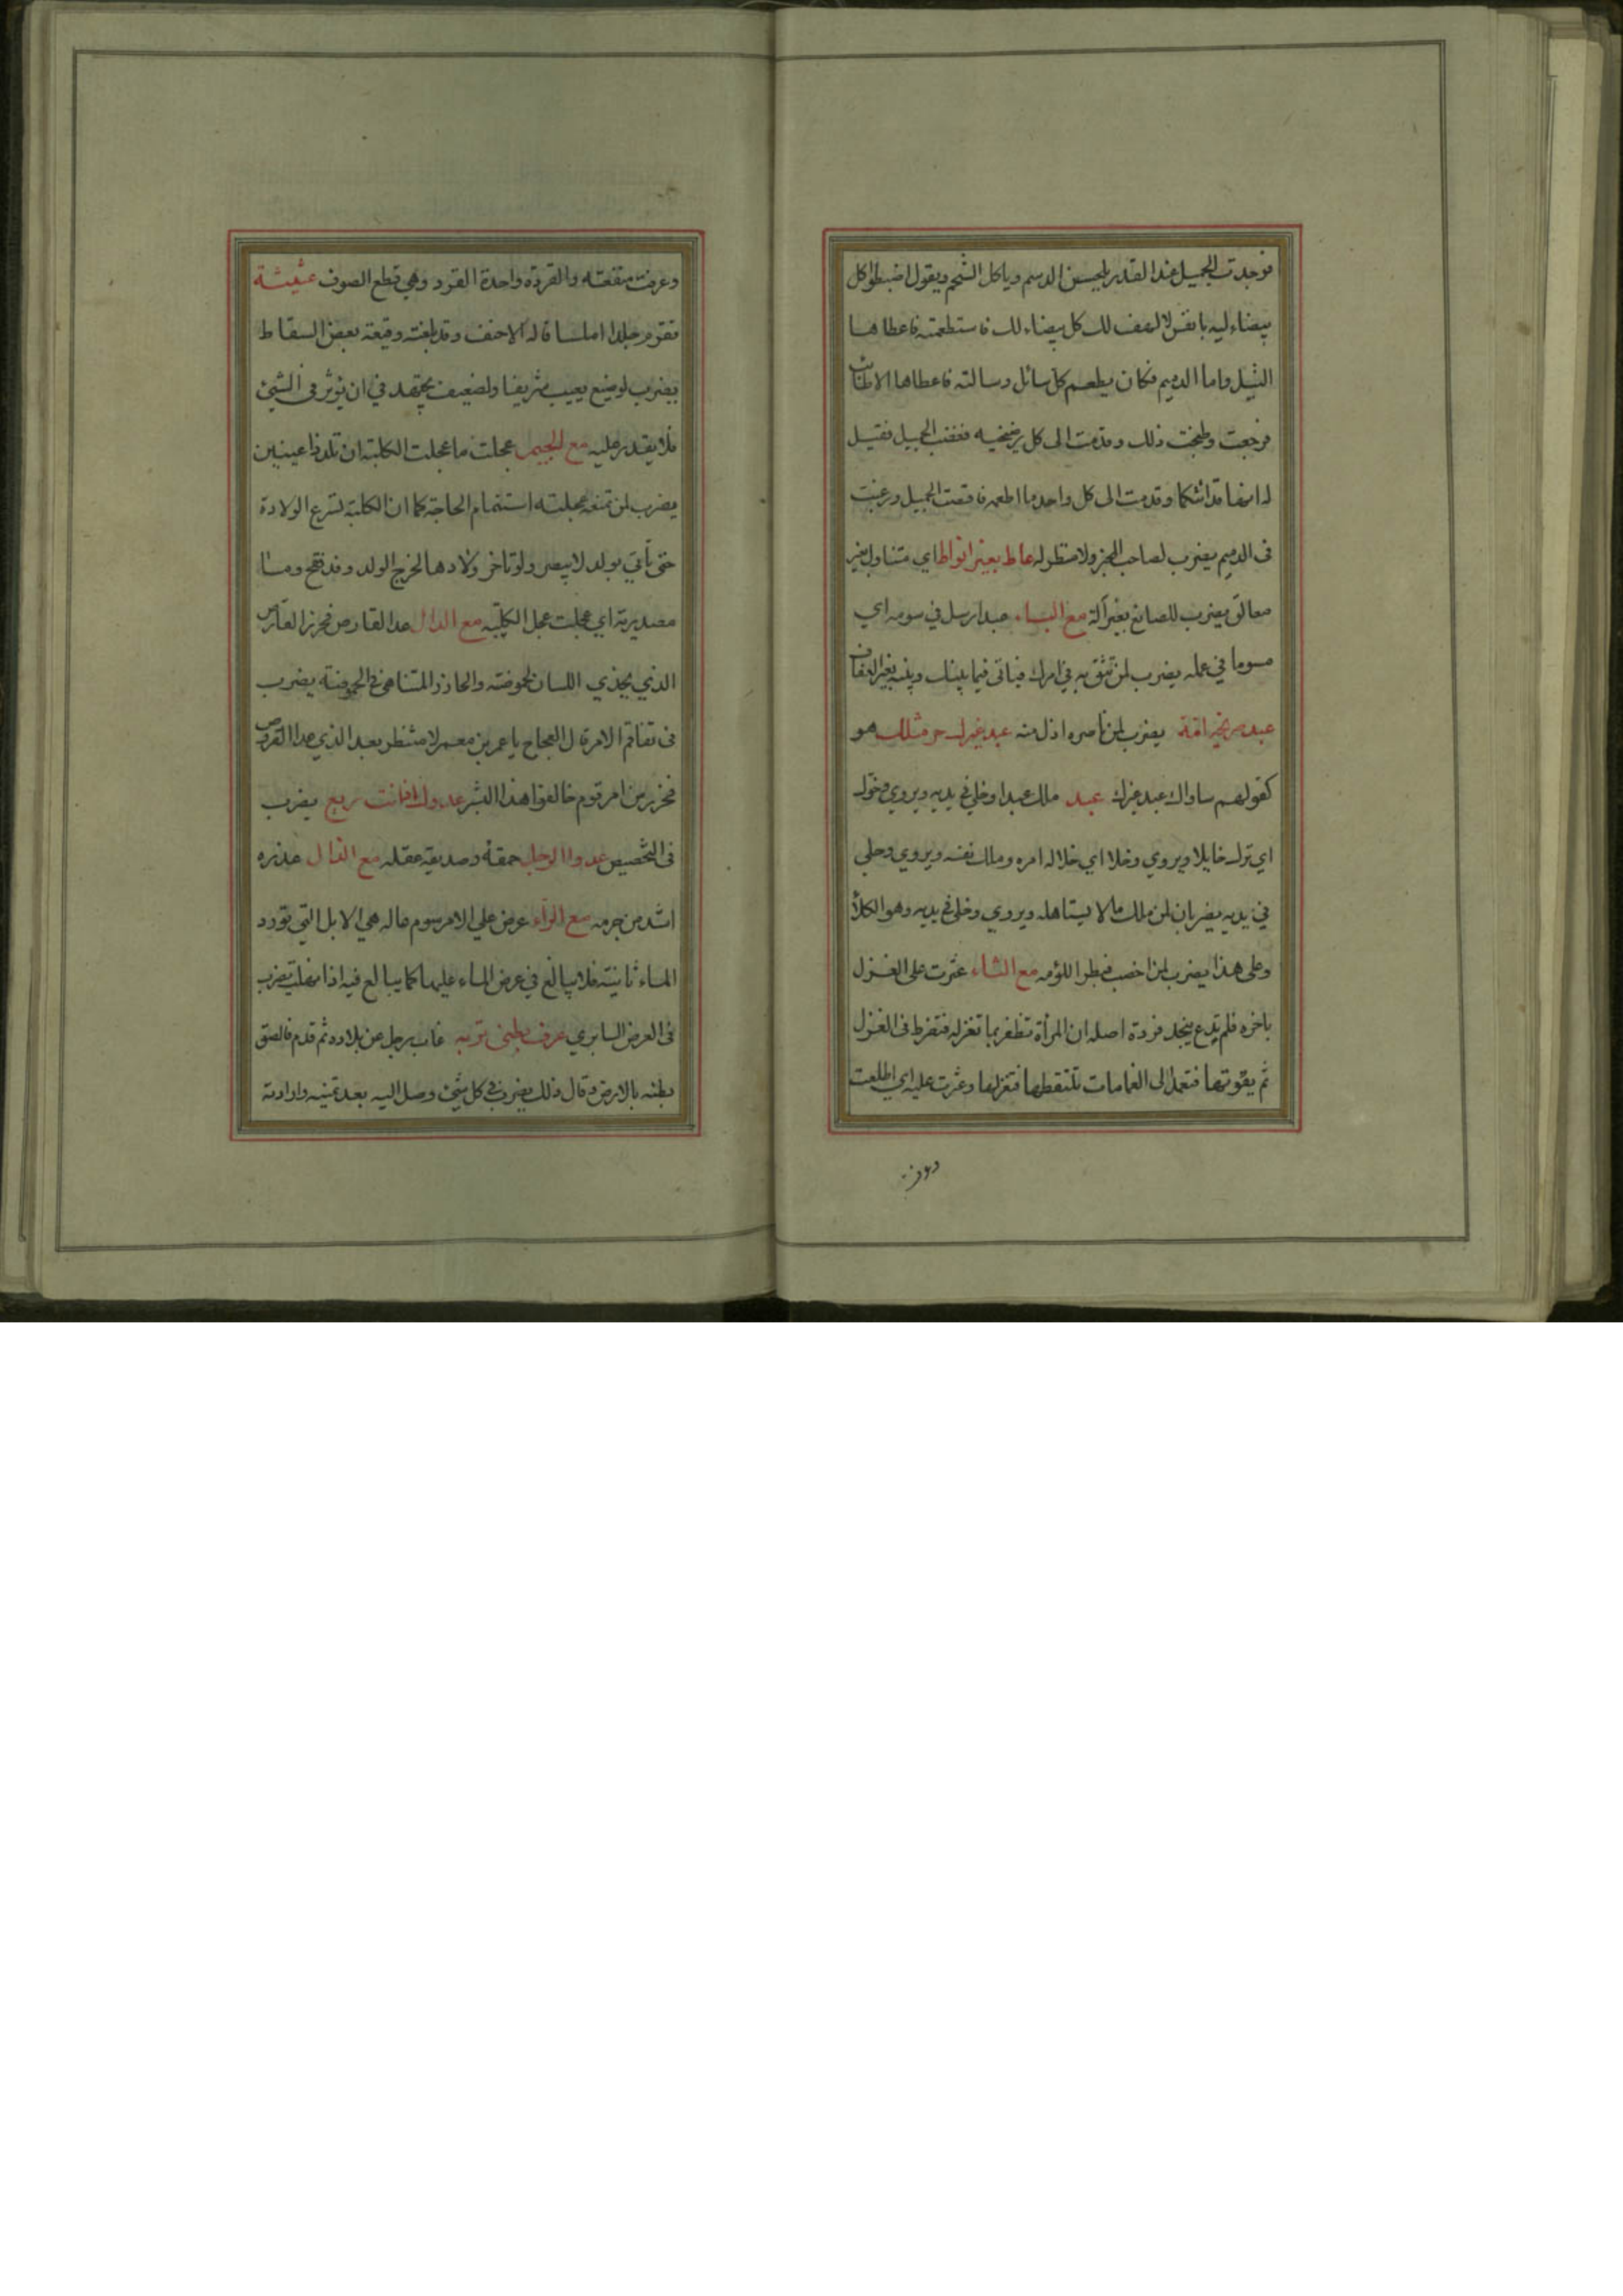 فوجدت الجميل عند القدر يلحس الدسم وياكل الشحم ويقول اضبطوا كل
بيضاء ليه بالعف لك كل بيضاء لك فاستطعمته فاعطاها
الثيل واما الدميم فكان يطعم كل سائل وسالته فاعطاها الاطائب
فرجعت وطبخت ذلك وقدمت الى كل رضيخه فغضب الجميل فقيل
له انها قد اتتكما وقدمت الى كل واحد ما اطعمه فاقصت الجميل ورغبت
فى الدميم يضرب لصاحب الخبر ولا منظر له عاط بغير انواط اي متناول بغير
معاليق يضرب للصانع بغير آلة مع الباء عبد ارسل في سومه اي
مسوما في عمله يضرب لمن تثق به في امرك فياتى فيما بينك وبينه بغير العفاف
عبد صريخه امة يضرب لمن ناصره اذل منه عبد غيرك حر مثلك هو
كقولهم ساواك عبد غيرك عبد ملك عبدا وخلي في يديه ويروي وخول
اي ترك خايلا ويروي وخلا اي خلا له امره وملك نفسه ويروي وحلي
في يديه يضربان لمن ملك مالا يستاهله ويروي وخلي في يديه وهو الكلأ
وعلى هذا يضرب لمن اخصب فبطر اللؤمه مع الثاء عثرت على الغزل
باخره فلم يدع بنجد فردة اصله ان المرأة تظفر بما تغزله فتفرط فى الغزل
ثم يفوتها فتعمد الى القمامات تلتقطها فتغزلها وعثرت عليه اي اطلعت
وعرفت منفعته والقردة واحدة القرد وهي قطع الصوف عثيثة
تقرم جلدا املسا قاله الاحنف وقد بلغته وقيعة بعض السقاط
يضرب لوضيع يعيب شريفا ولضعيف يجتهد في ان يؤثر فى الشئ
فلا يقدر عليه مع الجيم عجلت ما عجلت الكلبة ان تلد ذا عينين
يضرب لمن تمنعه عجلته استتمام الحاجة كما ان الكلبة تسرع الولادة
حتى تأتي بولد لا يبصر ولو تاخر ولادها لخرج الولد وقد فقح وما
مصدرية اي عجلت عجل الكلبة مع الدال عدا القارص فحزر القارص
الذي يحذي اللسان لحموضته والحاذر المتناهى فى الحموضة يضرب
فى تفاقم الامر قال العجاج يا عمر بن معمر لا منتظر بعد الذي عدا القروص
فحزر من امر قوم خالفوا هذا البشر عدوك اذ انت ربع يضرب
فى التحصيص عدوا الرجل حمقه وصديقه عقله مع الذال عذره
اشد من جرمه مع الراء عرض علي الامر سوم عاله هي الابل التي تورد
الماء ثانية فلا يبالغ في عرض الماء عليها كما يبالغ فيه اذا نهلت يضرب
فى العرض السابري عرف بطني تربه غاب رجل عن بلاده ثم قدم فالصق
بطنه بالارض وقال ذلك يضرب في كل شئ وصل اليه بعد تمنيه وارادته